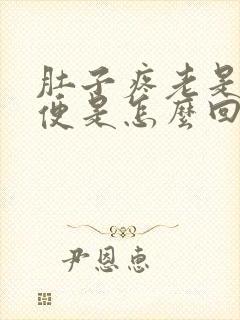 肚子疼老是
便是怎麼回
尹恩惠